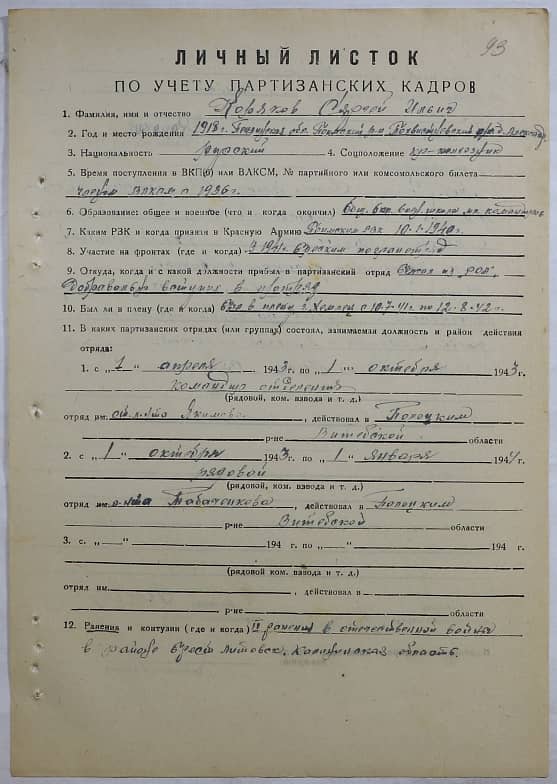 93
ЛИЧНЫЙ ЛИСТОК
ПО УЧЕТУ ПАРТИЗАНСКИХ КАДРОВ
1. Фамилия, имя и отчество Сергей Ильич
2. Год и место рождения 1918 г. обл.
3. Национальность русский 4. Соцположение
5. Время поступления в ВКП(б) или ВЛКСМ, № партийного или комсомольского билета
член ВЛКСМ с 1936 г.
6. Образование: общее и военное (что и когда окончил)
7. Каким РЗК и когда призван в Красную Армию рвк 10-1-1940 г.
8. Участие на фронтах (где и когда) 1941 г.
9. Откуда, когда и с какой должности прибыл в партизанский отряд бежал из
10. Был ли в плену (где и когда) Был в плену г. с 10-7-41 г. по 12-8-42 г.
11. В каких партизанских отрядах (или группах) состоял, занимаемая должность и район действия
отряда:
1. с „1“ апреля 1943 г. по „1“ октября 1943 г.
командир отделения
(рядовой, ком. взвода и т. д.)
отряд им. Якимова, действовал в Полоцким
р-не Витебской области
2. с „1“ октября 1943 г. по „1“ января 1944 г.
рядовой
(рядовой, ком. взвода и т. д.)
отряд им. Табаченкова, действовал в Полоцким
р-не Витебской области
3. с „ “ 194 г. по „ “ 194 г.
(рядовой, ком. взвода и т. д.)
отряд им. , действовал в
р-не области
12. Ранения и контузии (где и когда) II ранения в отечественной война
в районе Брест Литовск. Калининская область.